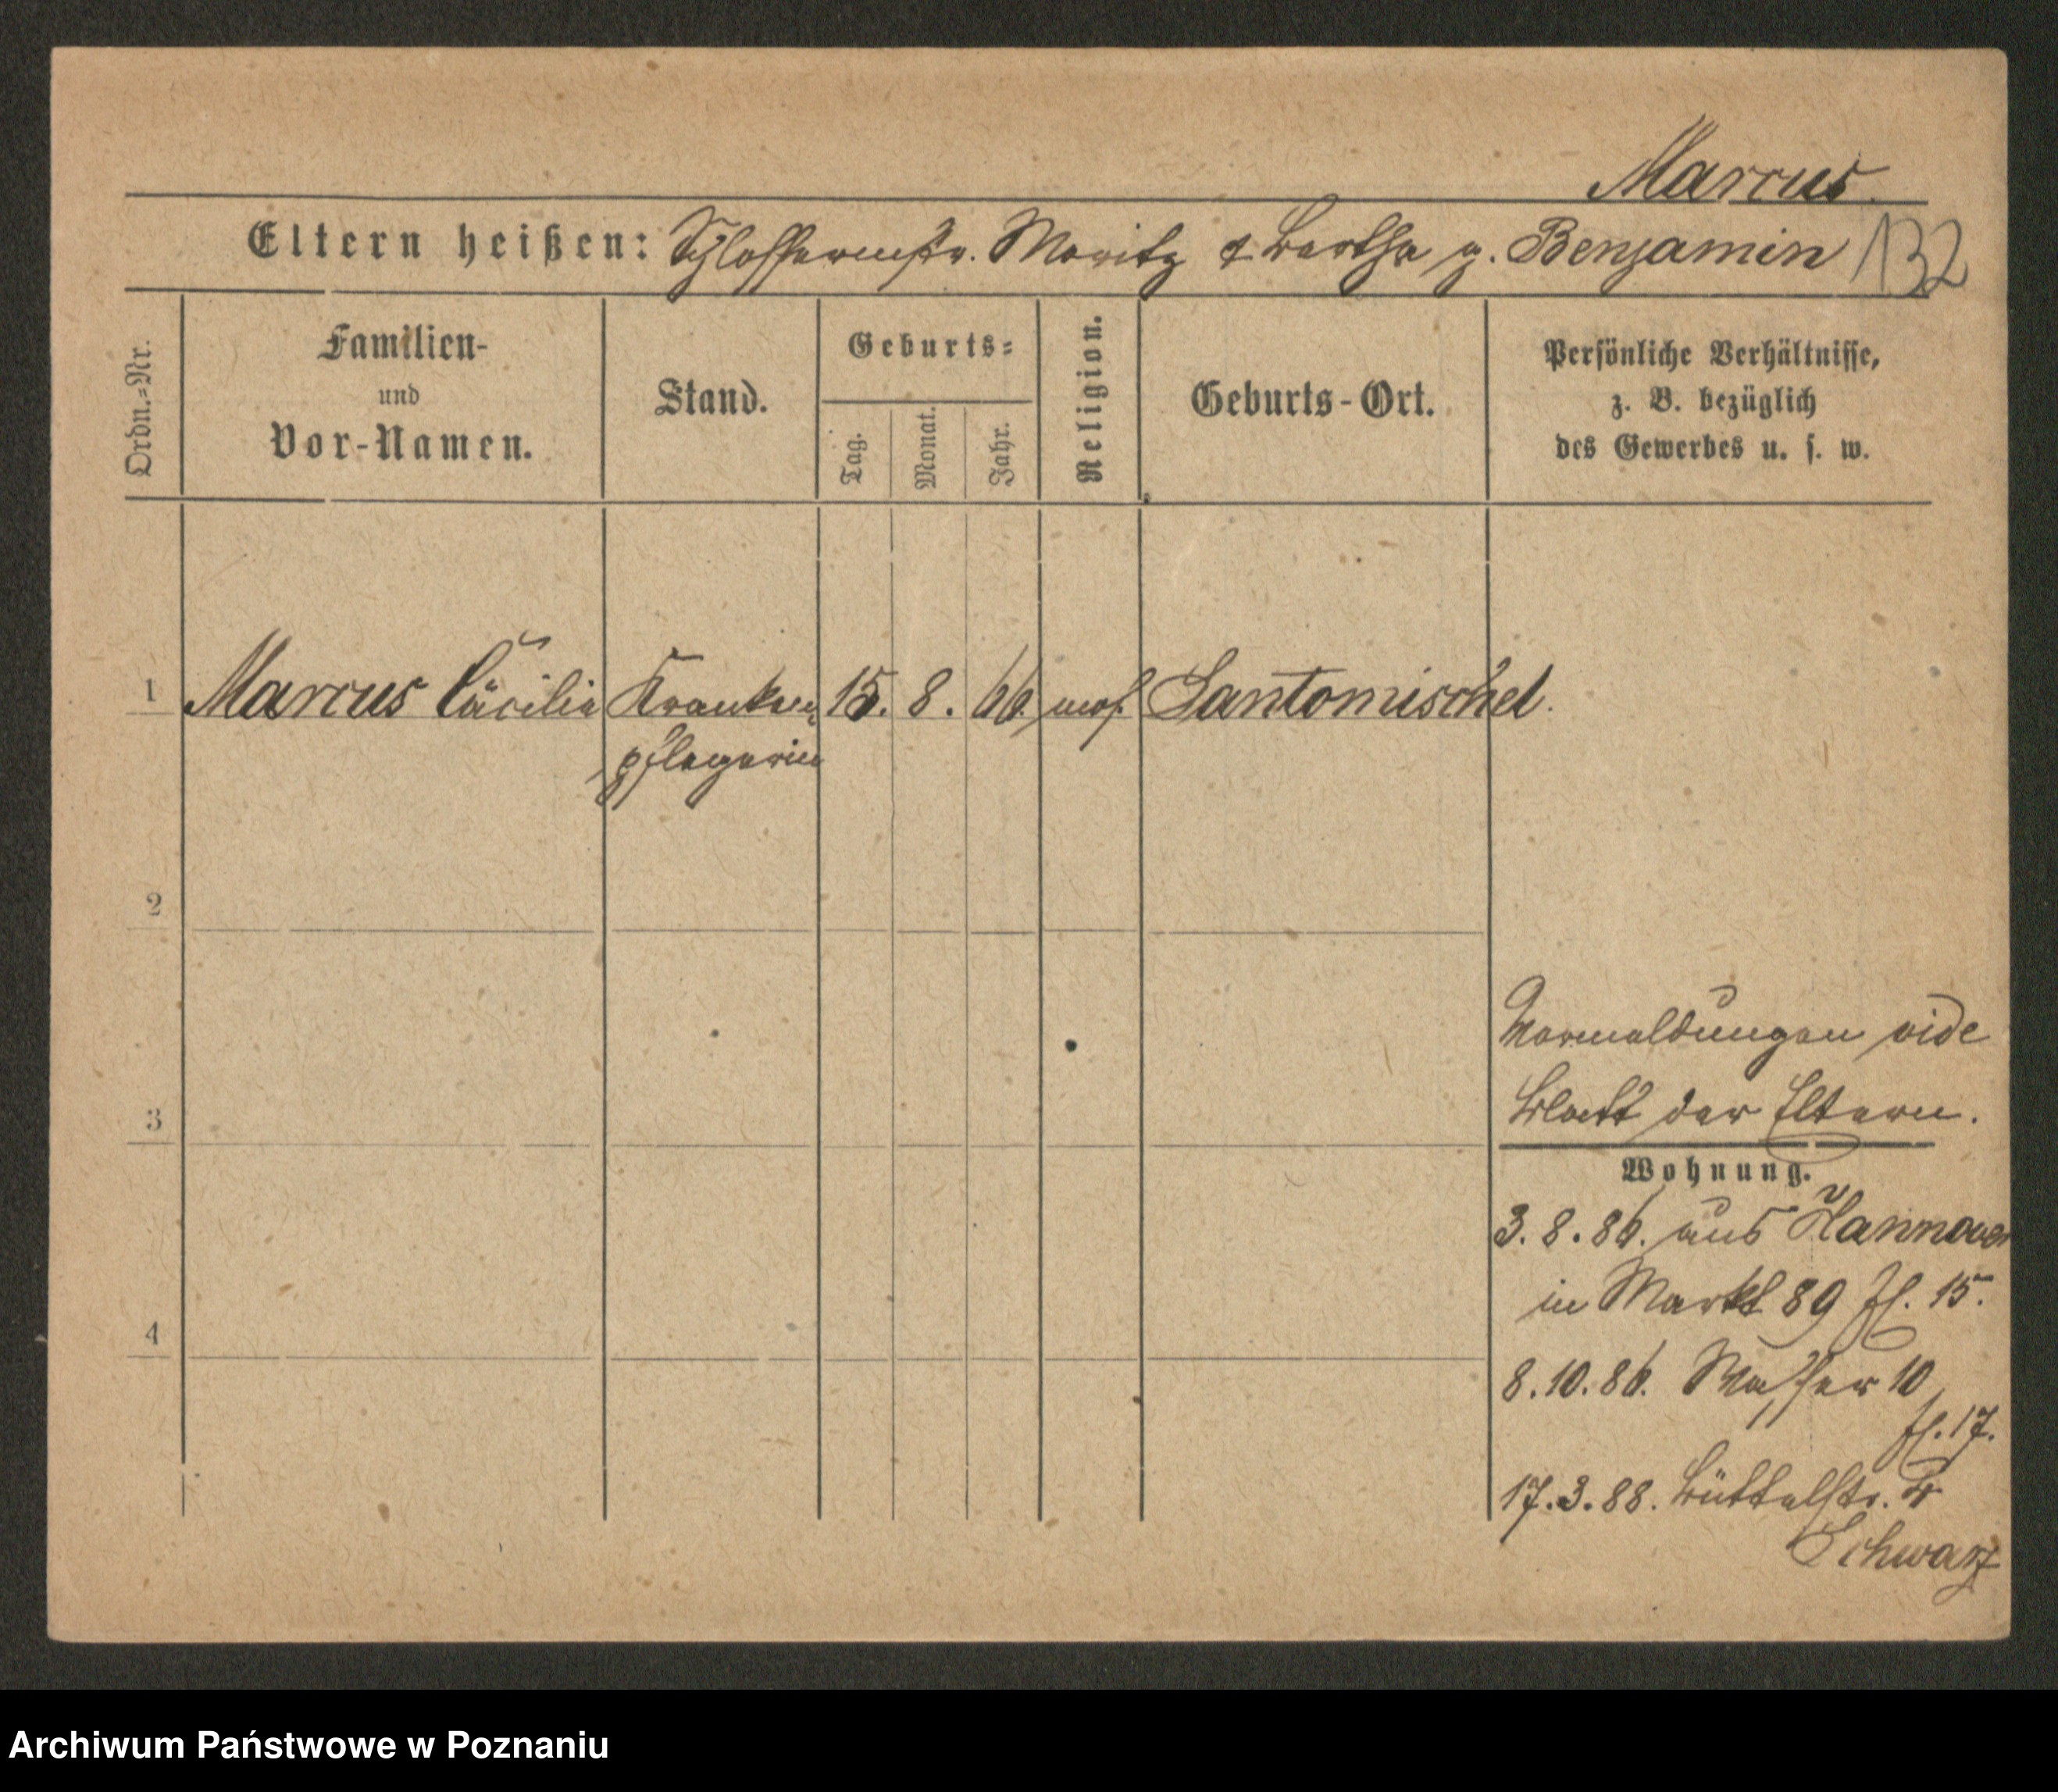 Marcus.
Eltern heißen: Schlossermstr. Moritz & Bertha g. Benjamin 132
Ordn.=Nr.
Familien-
und
Vor-Namen.
Stand.
Geburts=
Tag.
Monat.
Jahr.
Religion.
Geburts-Ort.
Persönliche Verhältnisse,
z. B. bezüglich
des Gewerbes u. s. w.
1 Marcus Cäcilie Kranken 15. 8. 66. mos. Santomischel.
pflegerin
2
Vormeldungen vide
3 Blatt der Eltern.
Wohnung.
3. 8. 86. aus Hannover
in Markt 89 fl. 15.
4
8. 10. 86. Wasser 10
fl. 17.
17. 3. 88. Büttelstr.
Schwarz
Archiwum Państwowe w Poznaniu